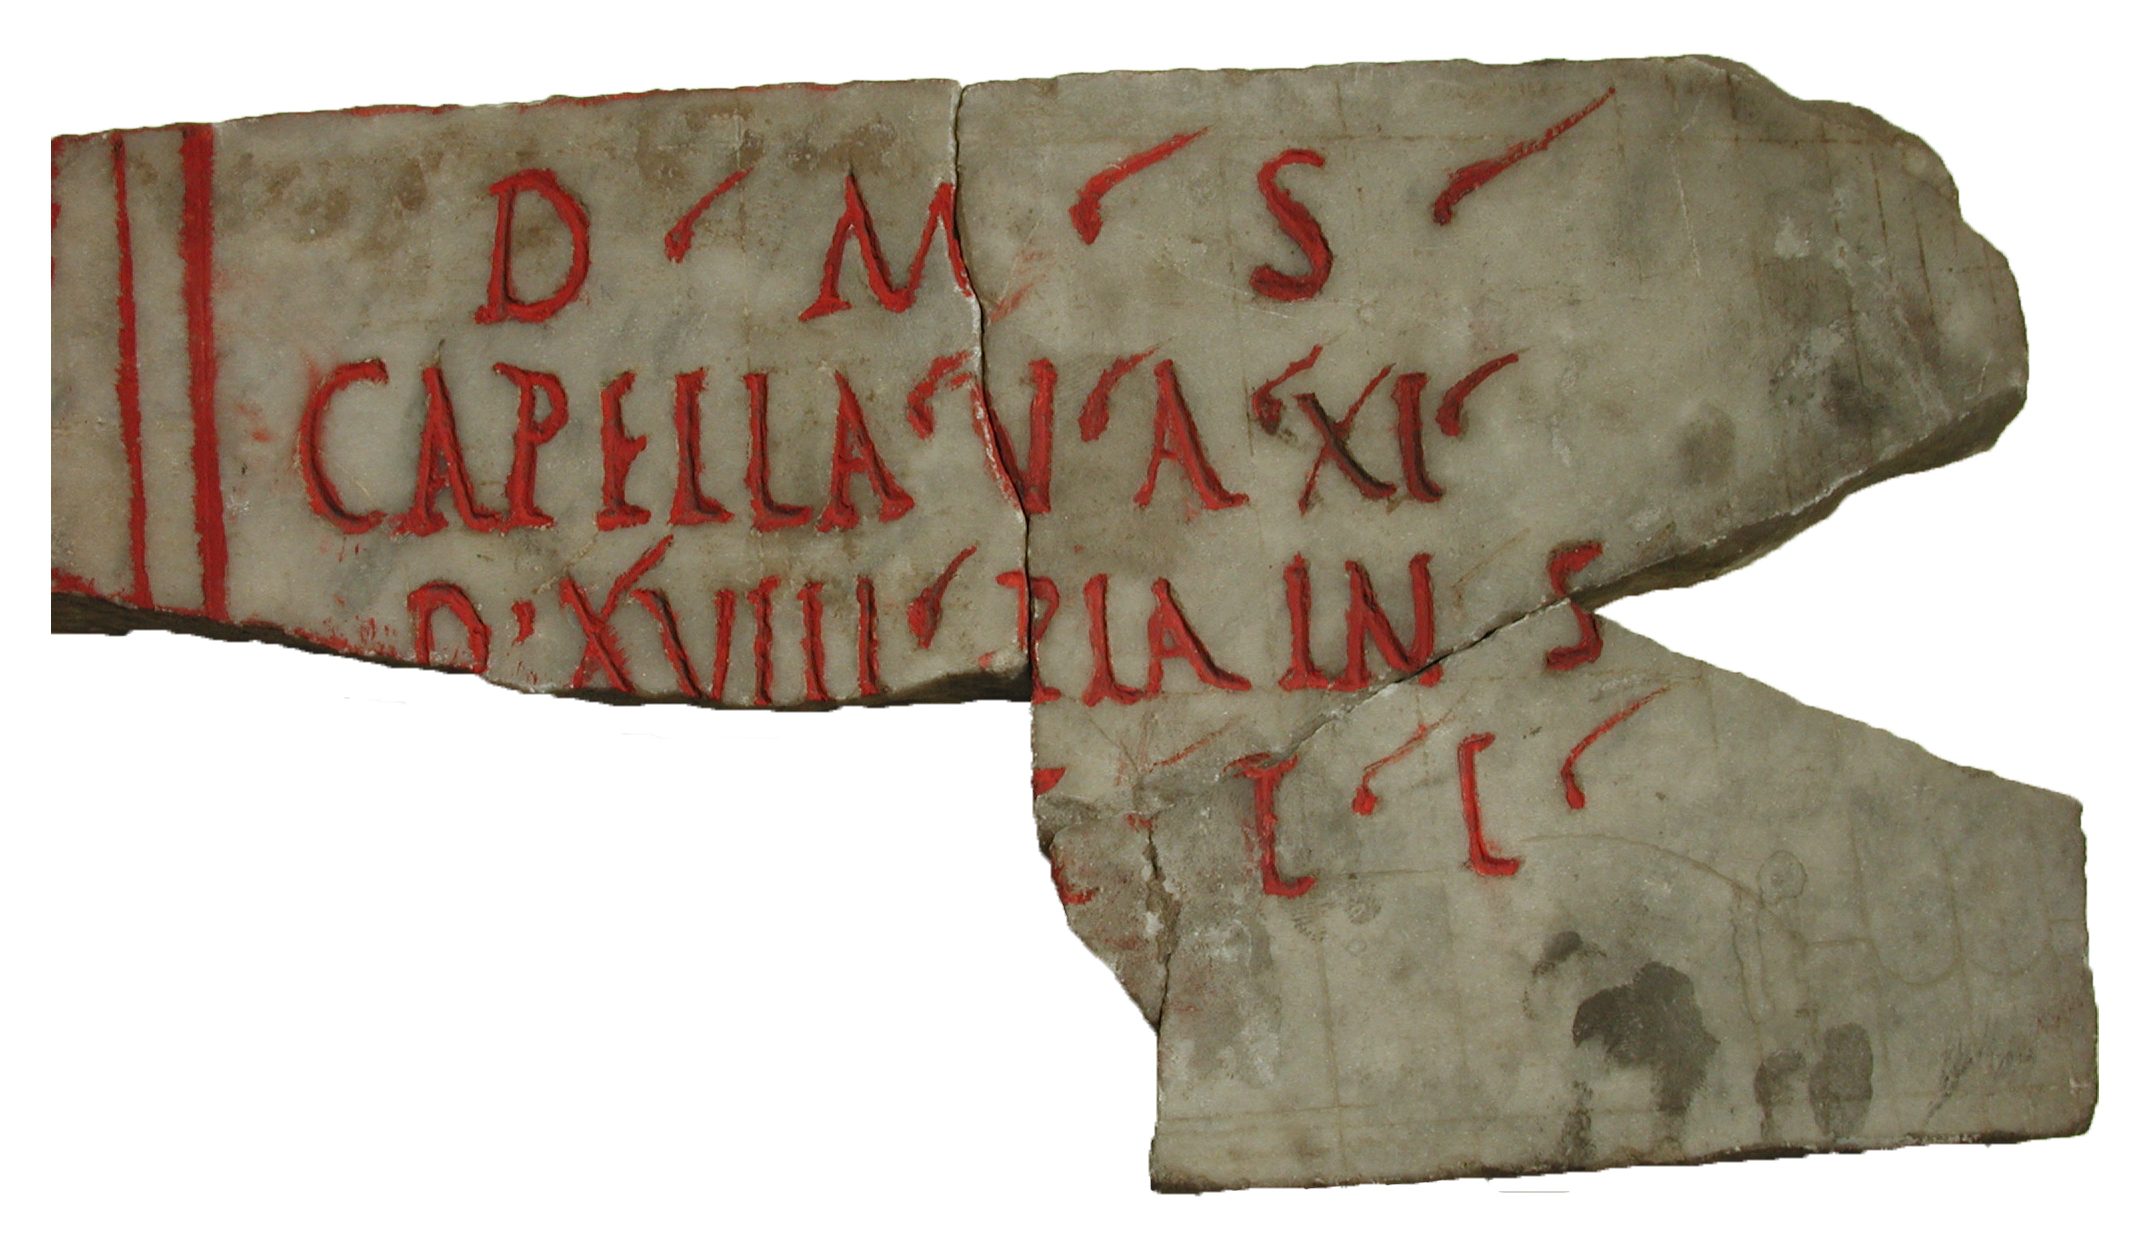 D M S
CAPELLA V A XI
D XVIII PIA IN S
T L